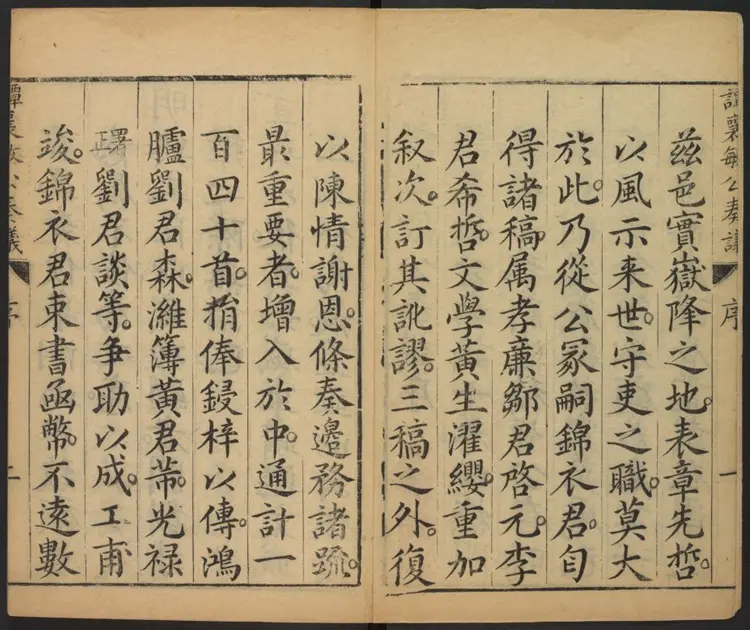 譚襄敏公奏議 序 一
茲邑實嶽降之地。表章先哲。
以風示来世。守吏之職。莫大
於此。乃從公冢嗣錦衣君自
得諸稿属孝廉鄒君啓元。李
君希哲。文學黄生濯纓。重加
叙次。訂其訛謬。三稿之外。復
以陳情謝恩。條奏邉務諸䟽。
最重要者。增入於中。通計一
百四十首。捐俸鋟梓以傳。鴻
臚劉君森。濰簿黄君芾。光禄
署正劉君談等。争助以成。工甫
竣。錦衣君束書凾幣。不遠數
譚襄敏公奏議 序 二